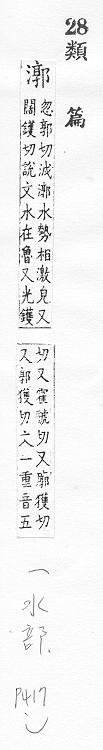 28
類
篇
漷
忽郭切漷水勢相激皃又
闊鑊切說文水在魯又光鑊
切又霍虢切又郭獲切
又郭獲切文一重音五
(水部
P417)